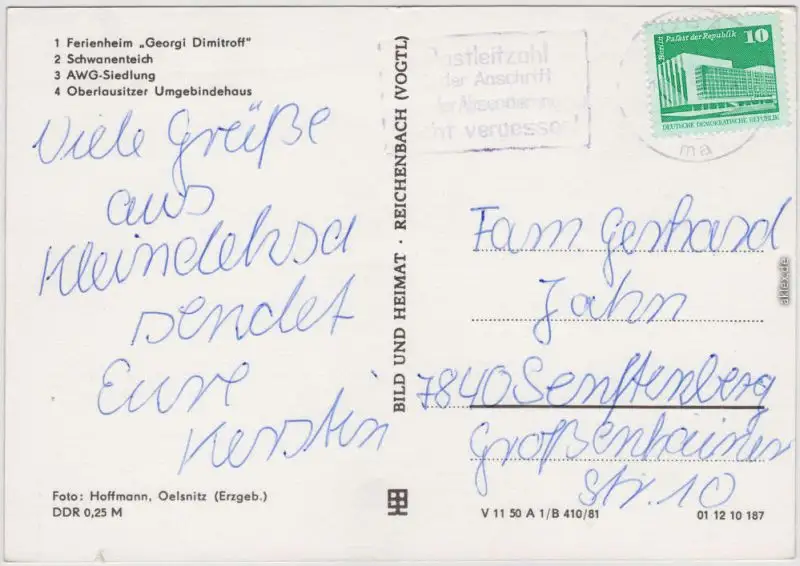 1 Ferienheim „Georgi Dimitroff"
2 Schwanenteich
3 AWG-Siedlung
4 Oberlausitzer Umgebindehaus
Viele Grüße
aus
Kleindehsa
sendet
Eure
Kerstin
Foto: Hoffmann, Oelsnitz (Erzgeb.)
DDR 0,25 M
BILD UND HEIMAT · REICHENBACH (VOGTL)
Postleitzahl
der Anschrift
vergessen
ma
Berlin Palast der Republik 10
DEUTSCHE DEMOKRATISCHE REPUBLIK
Fam Gerhard
Jahn
7840 Senftenberg
Großenhainer
Str. 10
V 11 50 A 1/B 410/81
01 12 10 187
akpool.de